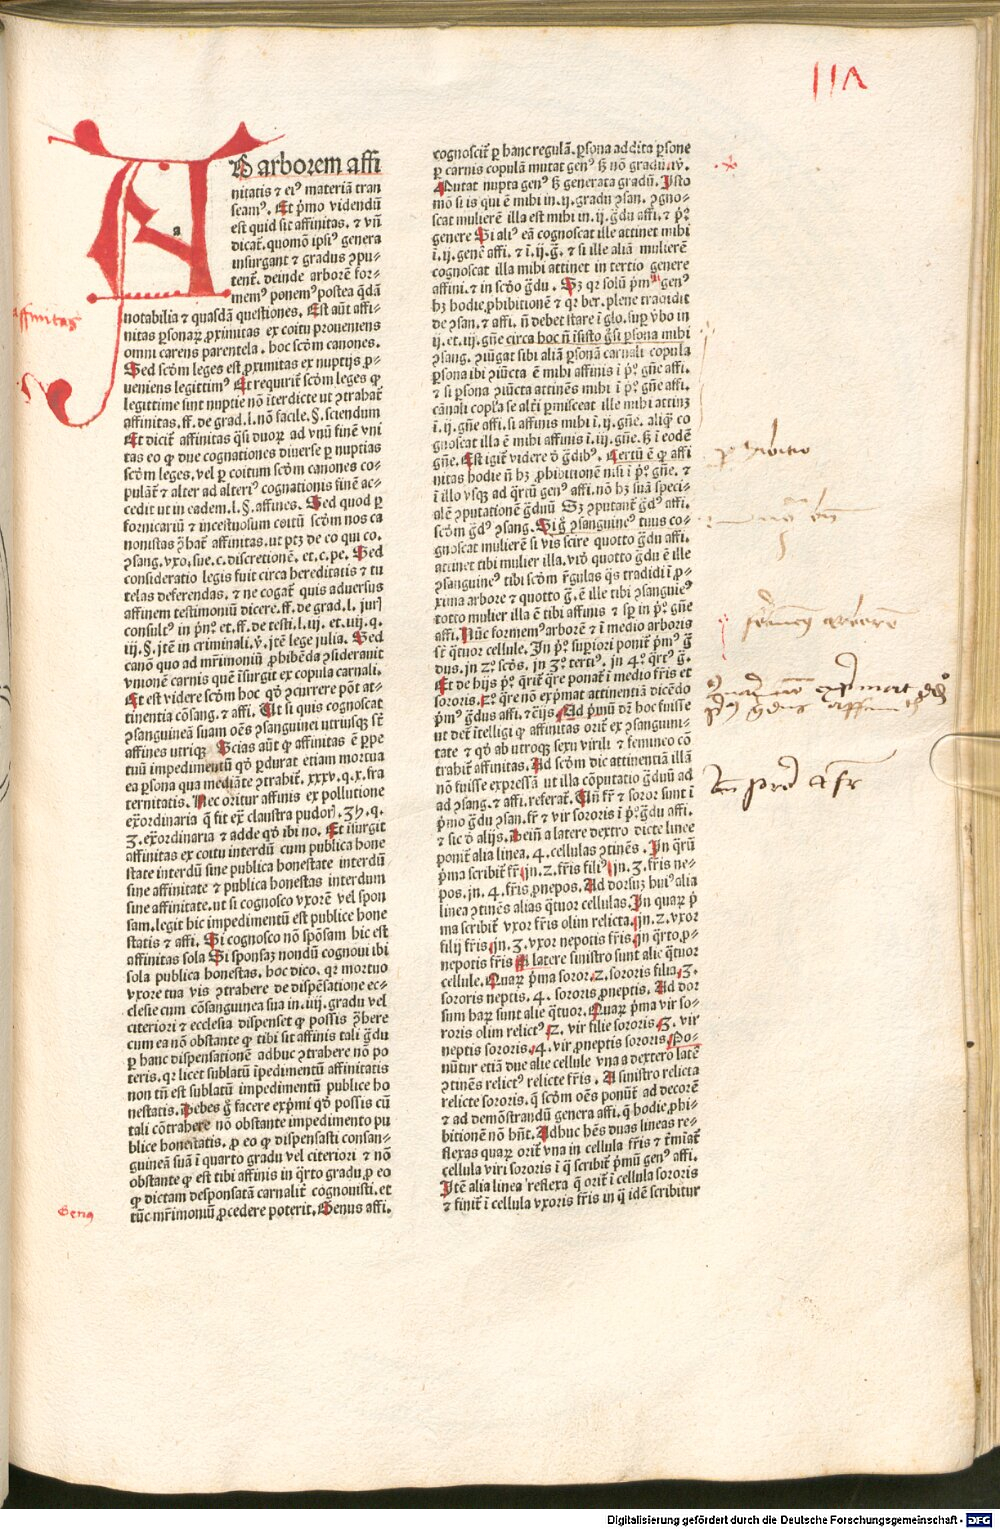 AD arborem affi
nitatis ⁊ eiꝰ materiā tran
seamꝰ. Et p̄mo videndū
est quid sit affinitas. ⁊ vn̄
dicat̄. quomō ipsiꝰ genera
insurgant ⁊ gradus ꝯpu-
tent̄. deinde arborē for-
memꝰ ponemꝰ postea q̄dā
notabilia ⁊ quasdā questiones. Est aūt affi-
nitas ꝑsonaꝝ ꝓximitas ex coitu ꝓueniens
omni carens parentela. hoc scd̄m canones.
Sed scd̄m leges est ꝓximitas ex nuptijs ꝓ-
ueniens legittimꝰ Et requirit̄ scd̄m leges ꝙ
legittime sint nuptie nō īterdicte ut ꝯtrahat̄
affinitas. ff. de grad. l. nō facile. §. sciendum
Et dicit̄ affinitas q̄si duoꝝ ad vnū finē vni
tas eo ꝙ due cognationes diuerse ꝑ nuptias
scd̄m leges. vel ꝑ coitum scd̄m canones co-
pulāt̄ ⁊ alter ad alteriꝰ cognationis finē ac-
cedit ut in eadem. l. §. affines. Sed quod ꝑ
fornicariū ⁊ incestuosum coitū scd̄m nos ca
nonistas ꝯ̄hat̄ affinitas. ut ptꝫ de eo qui co.
ꝯsang. vxo. sue. c. discretionē. et. c. pe. Sed
consideratio legis fuit circa hereditatis ⁊ tu
telas deferendas. ⁊ ne cogat̄ quis aduersus
affinem testimoniū dicere. ff. de grad. l. jurꝭ
consultꝰ in p̄nꝰ. et. ff. de testi. l. iij. et. iiij. q.
iij. §. jtē in criminali. v̄. jtē lege julia. Sed
canō quo ad mr̄imoniū ꝓhibēda ꝯsiderauit
vnionē carnis quē īsurgit ex copula carnali.
Et est videre scd̄m hoc qō ꝯcurrere pōt at-
tinentia cōsang. ⁊ affi. Ut si quis cognoscat
ꝯsanguineā suam oēs ꝯsanguinei utriusqꝫ st̄
affines utriqꝫ Scias aūt ꝙ affinitas ē ꝑpe
tuū impedimentū qō ꝑdurat etiam mortua
ea ꝑsona qua mediāte ꝯtrahit̄. xxxv. q. x. fra
ternitatis. Nec oritur affinis ex pollutione
ex̄ordinaria q̄ fit ex̄ claustra pudorꝭ. 35. q.
3. ex̄ordinaria ⁊ adde qō ibi no. Et īsurgit
affinitas ex coitu interdū cum publica hone
state interdū sine publica honestate interdū-
sine affinitate ⁊ publica honestas interdum
sine affinitate. ut si cognosco vxorē vel spon
sam. legit hic impedimentū est publice hone
statis ⁊ affi. Si cognosco nō spōsam hic est
affinitas sola Si sponsaꝫ nondū cognoui ibi
sola publica honestas. hoc dico. qꝛ mortuo
vxore tua vis ꝯtrahere de dispēsatione ec-
clesie cum cōsanguinea sua in. iiij. gradu vel
citeriori ⁊ ecclesia dispenset ꝙ possis ꝯ̄bere
cum ea nō obstante ꝙ tibi sit affinis tali ḡdu
ꝑ hanc dispensationē adhuc ꝯtrahere nō po
teris. qꝛ licet sublatū īpedimentū affinitatis
non tn̄ est sublatū impedimentū publice ho
nestatis. Debes ḡ facere exp̄mi qō possis cū
tali cōtrahere nō obstante impedimento pu
blice honestatis. ꝓ eo ꝙ dispensasti consan-
guineā suā ī quarto gradu vel citeriori ⁊ nō
obstante ꝙ est tibi affinis in q̄rto gradu ꝓ eo
ꝙ dictam desponsatā carnalit̄ cognouisti. et
tūc mr̄imoniū ꝓcedere poterit. Genus affi.
cognoscit̄ ꝑ hanc regulā. ꝑsona addita ꝑsone
ꝑ carnis copulā mutat genꝰ sꝫ nō gradū. v̄.
Mutat nupta genꝰ sꝫ generata gradū. Isto
mō si is qui ē mihi in. ij. gradu ꝯsan. ꝯgno-
scat mulierē illa est mihi in. ij. ḡdu affi. ⁊ p̄ꝰ.
genere Si aliꝰ eā cognoscat ille attinet mihi
ī. ij. genē affi. ⁊ ī. ij. ḡ. ⁊ si ille aliā mulierē
cognoscat illa mihi attinet in tertio genere
affini. ⁊ in scd̄o ḡdu. Sꝫ qꝛ solū p̄mū genꝰ
hꝫ hodie ꝓhibitionē ⁊ qꝛ ber. plene tradidit
de ꝯsan. ⁊ affi. n̄ debet stare ī glo. suꝑ v̄bo in
ij. et. iij. gn̄e circa hoc n̄ īsisto ḡ si ꝑsona mihi
ꝯsang. ꝯiūgat sibi aliā ꝑsonā carnali copula
ꝑsona ibi ꝯiūcta ē mihi affinis ī p̄ꝰ. gn̄e affi.
⁊ si ꝑsona ꝯiūcta attinēs mihi ī p̄ꝰ. gn̄e affi.
cānali copl̄a se alt̄i ꝑmisceat ille mihi attinꝫ
ī. ij. gn̄e affi. si affinis mihi ī. ij. gn̄e. aliqꝫ co
gnoscat illa ē mihi affinis ī. iij. gn̄e. sꝫ ī eodē
gn̄e. Est igit̄ videre ō ḡdibꝰ. Certū ē ꝙ affi
nitas hodie n̄ hꝫ ꝓhibitionē nisi ī p̄ꝰ. gn̄e. ⁊
ī illo vsqꝫ ad q̄rtū genꝰ affi. nō hꝫ suā speci-
alē ꝯputationē ḡduū Sꝫ ꝯputant̄ ḡdꝰ affi.
scd̄m ḡdꝰ ꝯsang. Si ḡ ꝯsanguineꝰ tuus co-
gnoscat mulierē si vis scire quotto ḡdu affi.
attinet tibi mulier illa. vidō quotto ḡdu ē ille
ꝯsanguineꝰ tibi scd̄m r̄gulas q̄s tradidi ī ꝓ-
xima arbore ⁊ quotto ḡ. ē ille tibi ꝯsanguieꝰ
totto mulier illa ē tibi affinis ⁊ sꝑ in p̄ꝰ. gn̄e
affi. Nūc formemꝰ arborē ⁊ ī medio arboris
st̄ q̄tuor cellule. In p̄ꝰ. suꝑiori ponit̄ p̄mꝰ ḡ
dus. jn 2ꝰ. scd̄s. jn 3ꝰ. tertꝰ. jn 4ꝰ. q̄rtꝰ ḡ.
Et de hijs p̄ꝰ. q̄rit̄ q̄re ponat̄ ī medio fr̄is et
sororis. 2ꝰ. q̄re nō exp̄mat attinentiā dicēdo
p̄mꝰ ḡdus affi. ⁊ c̄ijs. Ad p̄mū dn̄ hoc fuisse
ut det̄ ītelligi ꝙ affinitas orit̄ ex ꝯsanguini-
tate ⁊ qō ab utroqꝫ sexu virili ⁊ femineo cō
trahit̄ affinitas. Ad scd̄m dic attinentiā illā
nō fuisse expressā ut illa cōputatio ḡduū ad
ad ꝯsang. ⁊ affi. referat̄. Un̄ fr̄ ⁊ soror sunt ī
p̄mo ḡdu ꝯsan. fr̄ ⁊ vir sororis ī p̄ꝰ. ḡdu affi.
⁊ sic ō alijs. Dein̄ a latere dextro dicte linee
ponit̄ alia linea. 4. cellulas ꝯtinēs. In q̄rū
p̄ma scribit̄ fr̄. jn. 2. fr̄is filiꝰ jn. 3. fr̄is ne-
pos. jn. 4. fr̄is. ꝓnepos. Ad dorsuꝫ huiꝰ alia
linea ꝯtinēs alias q̄tuor cellulas. In quaꝝ p̄
ma scribit̄ vxor fr̄is olim relicta. jn. 2. vxor
filij fr̄is. jn. 3. vxor nepotis fr̄is. jn q̄rto. ꝓ-
nepotis fr̄is A latere sinistro sunt alie q̄tuor
cellule. Quaꝝ p̄ma soror. 2. sororis filia. 3.
sororis neptis. 4. sororis ꝓneptis. Ad dor
sum haꝝ sunt alie q̄tuor. Quaꝝ p̄ma vir so-
roris olim relictꝰ. 2. vir filie sororis. 3. vir
neptis sororis. 4. vir. ꝓneptis sororis. Po-
nūtur etiā due alie cellule vna a dextero latē
ꝯtinēs relictꝰ relicte fr̄is. A sinistro relicta
relicte sororis. q̄ scd̄m oēs ponūt̄ ad decorē
⁊ ad demōstrandū genera affi. q̄ hodie ꝓhi-
bitionē nō hn̄t. Adhuc hēs duas lineas re-
flexas quaꝝ orit̄ vna in cellula fr̄is ⁊ t̄mīat̄
cellula viri sororis ī q̄ scribit̄ p̄mū genꝰ affi.
Itē alia linea reflexa q̄ orit̄ ī cellula sororis
⁊ finit̄ ī cellula vxoris fr̄is in q̄ idē scribitur
affinitas
Genꝰ
Digitalisierung gefördert durch die Deutsche Forschungsgemeinschaft - DFG